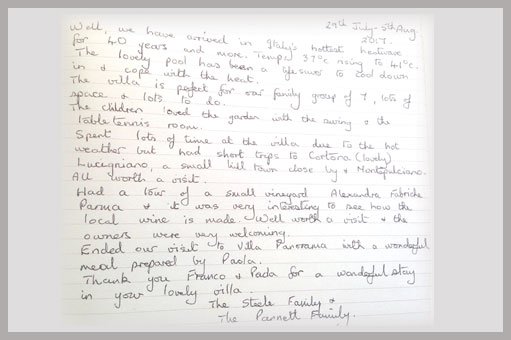 29th July - 5th Aug.
2017.
Well, we have arrived in Italy's hottest heatwave
for 40 years and more. Temps 37°c rising to 41°c.
The lovely pool has been a lifesaver to cool down
in & cope with the heat.
The villa is perfect for our family group of 7, lots of
space & lots to do.
The children loved the garden with the swing & the
table tennis room.
Spent lots of time at the villa due to the hot
weather but had short trips to Cortona (lovely)
Lucignano, a small hill town close by & Montepulciano.
All worth a visit.
Had a tour of a small vineyard Alexandra Fabriche
Parma & it was very interesting to see how the
local wine is made. Well worth a visit & the
owners were very welcoming.
Ended our visit to Villa Panorama with a wonderful
meal prepared by Paola.
Thank you Franco & Paola for a wonderful stay
in your lovely villa.
The Steele Family &
The Parnett Family.